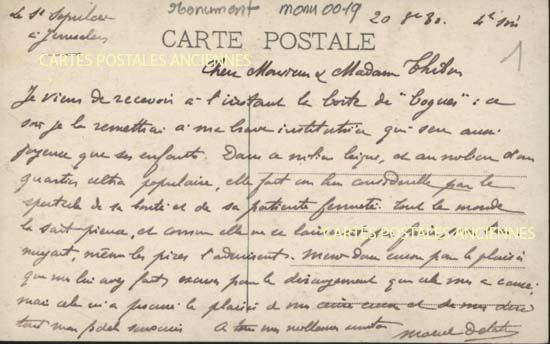 Le St Sepulcre
à Jerusalem
Monument monu 0019
20 8re 30. 4h soir
1
CARTE POSTALE
CARTES POSTALES ANCIENNES
Cher Monsieur & Madame
Je viens de recevoir à l'instant la boite de "Coques" : ce
soir je la remettrai à ma brave institutrice qui sera aussi
joyeuse que ses enfants. Dans ce milieu laïque, et au milieu d'un
quartier ultra populaire, elle fait un bien considerable par le
spectacle de sa bonté et de sa patiente fermeté. Tout le monde
la sait pieuse, et comme elle ne
CARTES POSTALES ANCIENNES
même les pires l'admirent. Merci donc encore pour le plaisir
que vous lui avez fait, excuses pour le dérangement que cela vous a causé
mais cela m'a procuré le plaisir de
tout mon fidèle souvenir A tous nos meilleures amitiés
Marcel